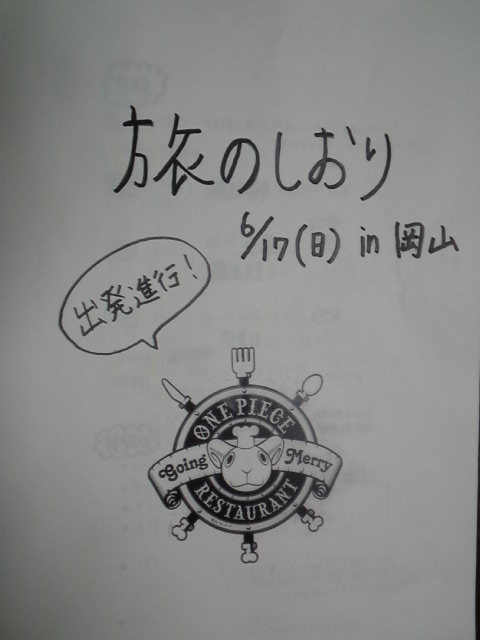 旅のしおり
6/17(日) in 岡山
出発進行!
ONE PIECE
Going Merry
RESTAURANT